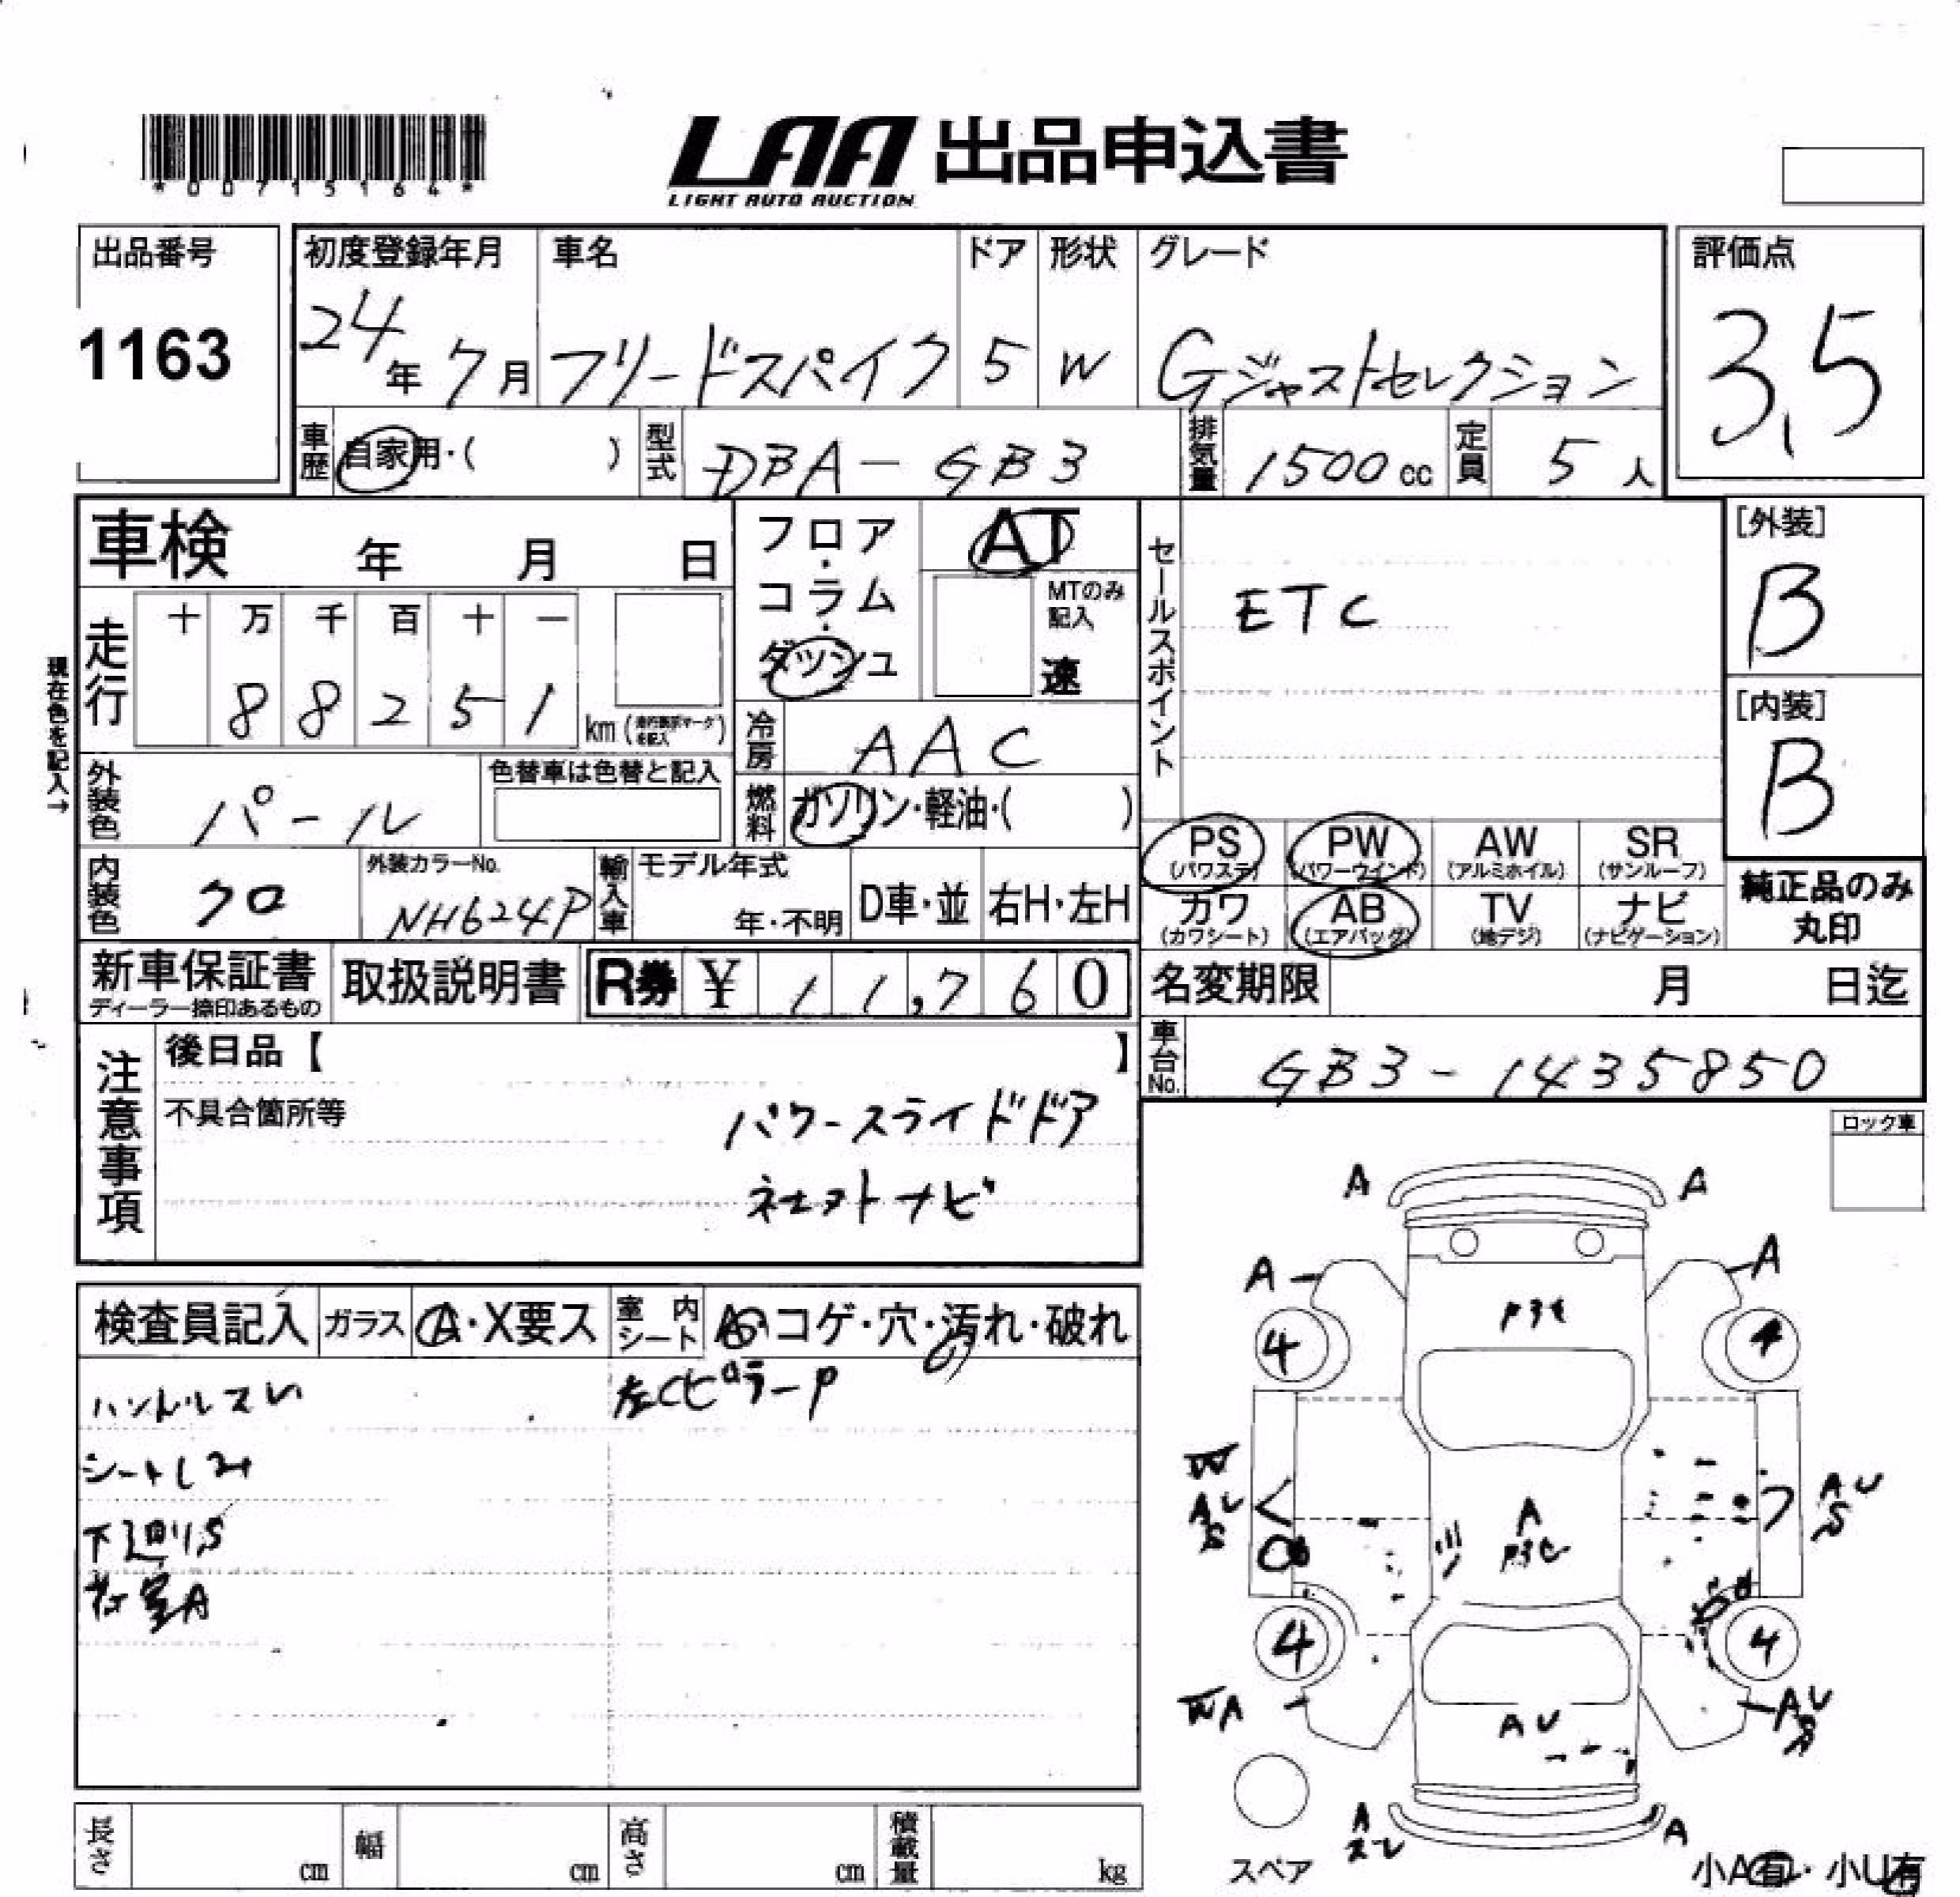 *00715164*
LAA 出品申込書
LIGHT AUTO AUCTION
出品番号
1163
初度登録年月
24年 7月
車名
フリードスパイク
ドア
5
形状
W
グレード
Gジャストセレクション
評価点
3.5
車歴
自家用・( )
型式
DBA-GB3
排気量
1500cc
定員
5人
車検 年 月 日
走行
十 万 千 百 十 一
8 8 2 5 1 km
現在色を記入→
フロア・コラム・ダッシュ
AT
MTのみ記入
速
冷房
AAC
燃料
ガソリン・軽油・( )
セールスポイント
ETC
[外装]
B
[内装]
B
外装色
パール
色替車は色替と記入
内装色
クロ
外装カラーNo.
NH624P
輸入車
モデル年式
年・不明
D車・並
右H・左H
PS (パワステ)
PW (パワーウインド)
AW (アルミホイル)
SR (サンルーフ)
カワ (カワシート)
AB (エアバッグ)
TV (地デジ)
ナビ (ナビゲーション)
純正品のみ丸印
新車保証書
ディーラー捺印あるもの
取扱説明書
R券 ¥ 11,760
名変期限 月 日迄
車台No.
GB3-1435850
注意事項
後日品【 】
不具合箇所等
パワースライドドア
ネエヌトナビ
ロック車
検査員記入
ガラス
A・X要ス
室内シート
コゲ・穴・汚れ・破れ
ハンドルスレ
左CピラーP
シートしみ
下廻りS
荷室A
A A
A A
4 4
A
AU
S
AU
S
4 4
A
AU
S
AU
A
スレ
A
スペア
小A有・小U有
長さ cm
幅 cm
高さ cm
積載量 kg